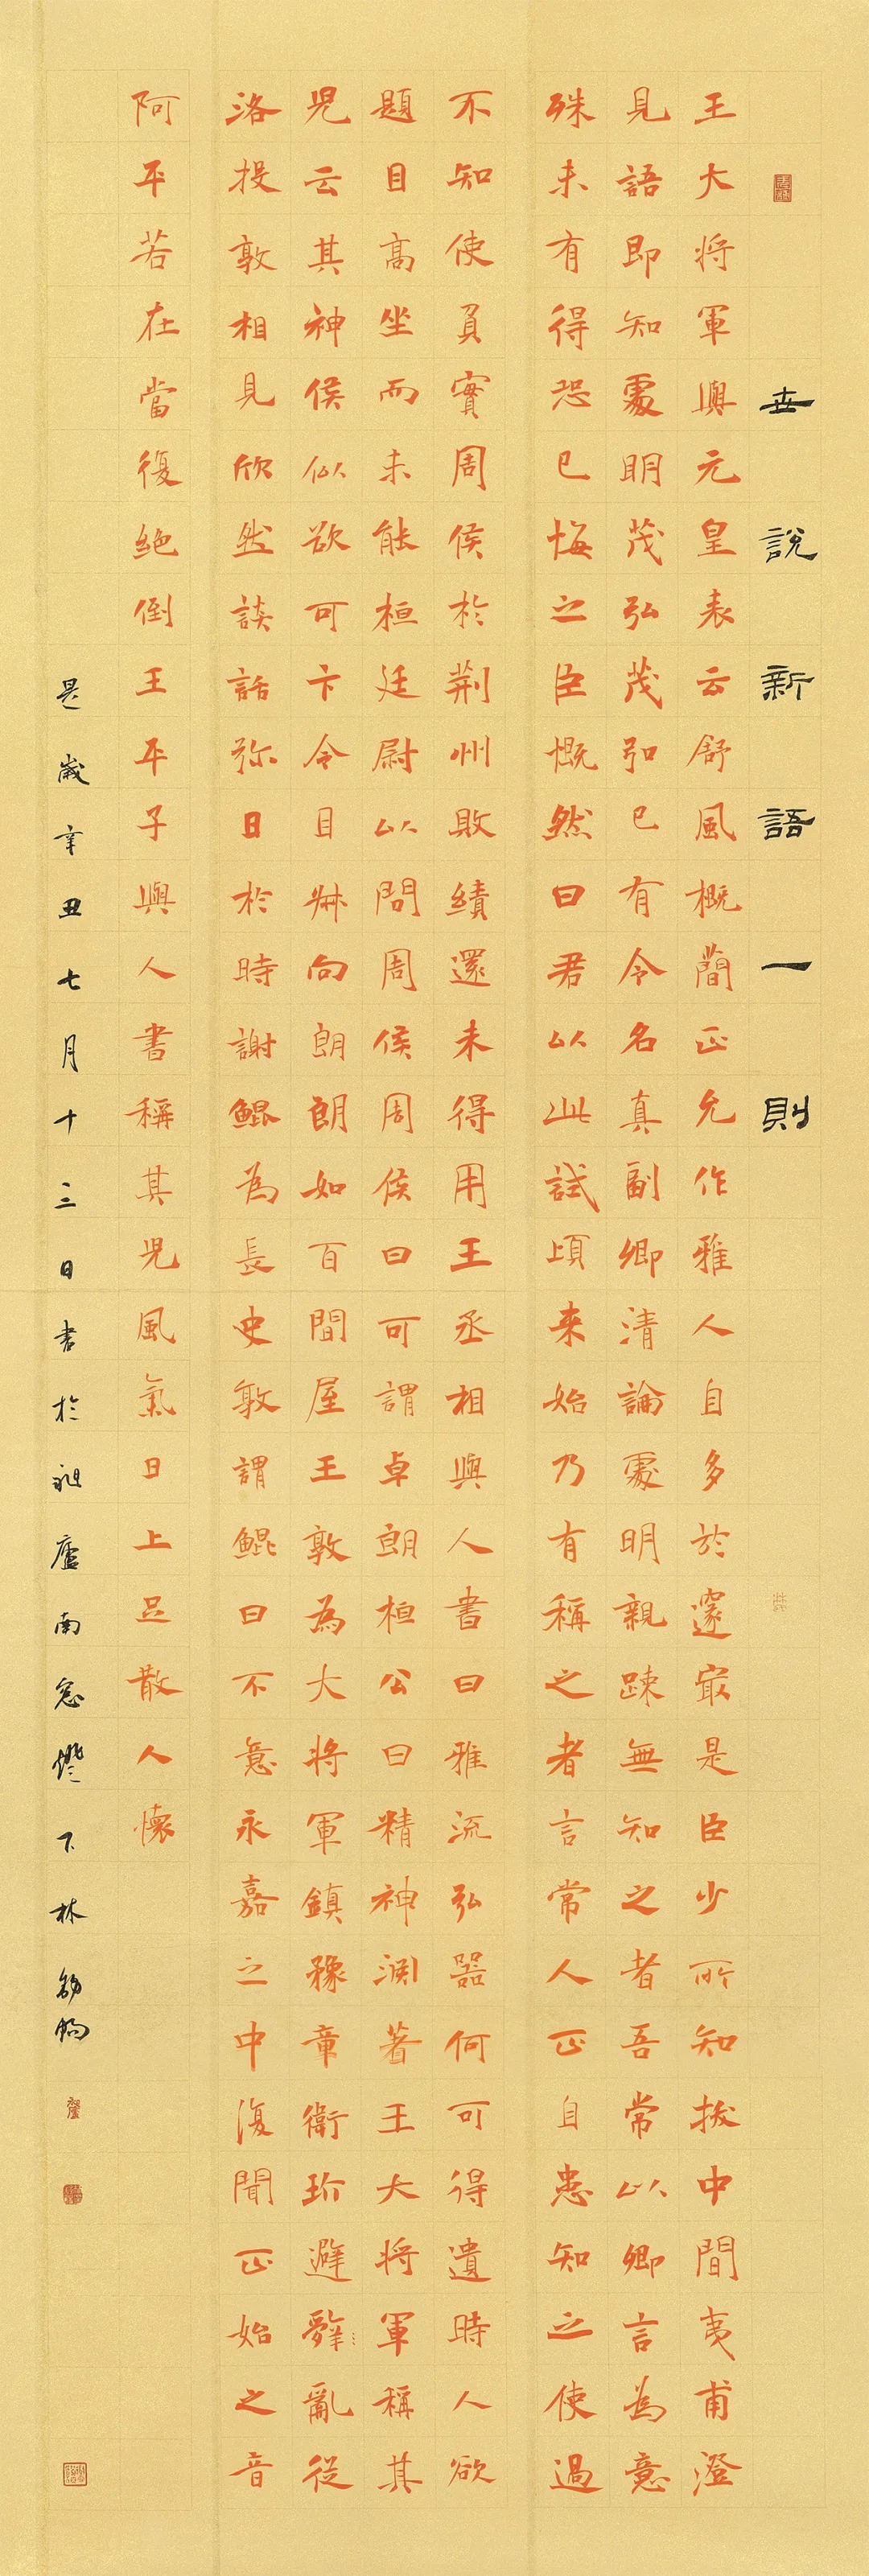 世說新語一則
王大將軍與元皇表云舒風概蕳正允作雅人自多於邃最是臣少所知拔中間夷甫澄
見語卿知處明茂弘茂弘已有令名真副卿清論處明親疎無知之者吾常以卿言為意
殊未有得恐已悔之臣慨然曰君以此試頃來始乃有稱之者言常人正自患知之使過
不知使負實周侯於荆州敗績還未得用王丞相與人書曰雅流弘器何可得遺時人欲
題目高坐而未能桓廷尉以問周侯周侯曰可謂卓朗桓公曰精神淵著王大將軍稱其
兒云其神侯似欲可卞令目叔向朗朗如百間屋王敦為大將軍鎮豫章衛玠避亂從
洛投敦相見欣然談話彌日於時謝鯤為長史敦謂鯤曰不意永嘉之中復聞正始之音
阿平若在當復絕倒王平子與人書稱其兒風氣日上足散人懷
是歲辛丑七月十三日書於昶廬南窓燈下林